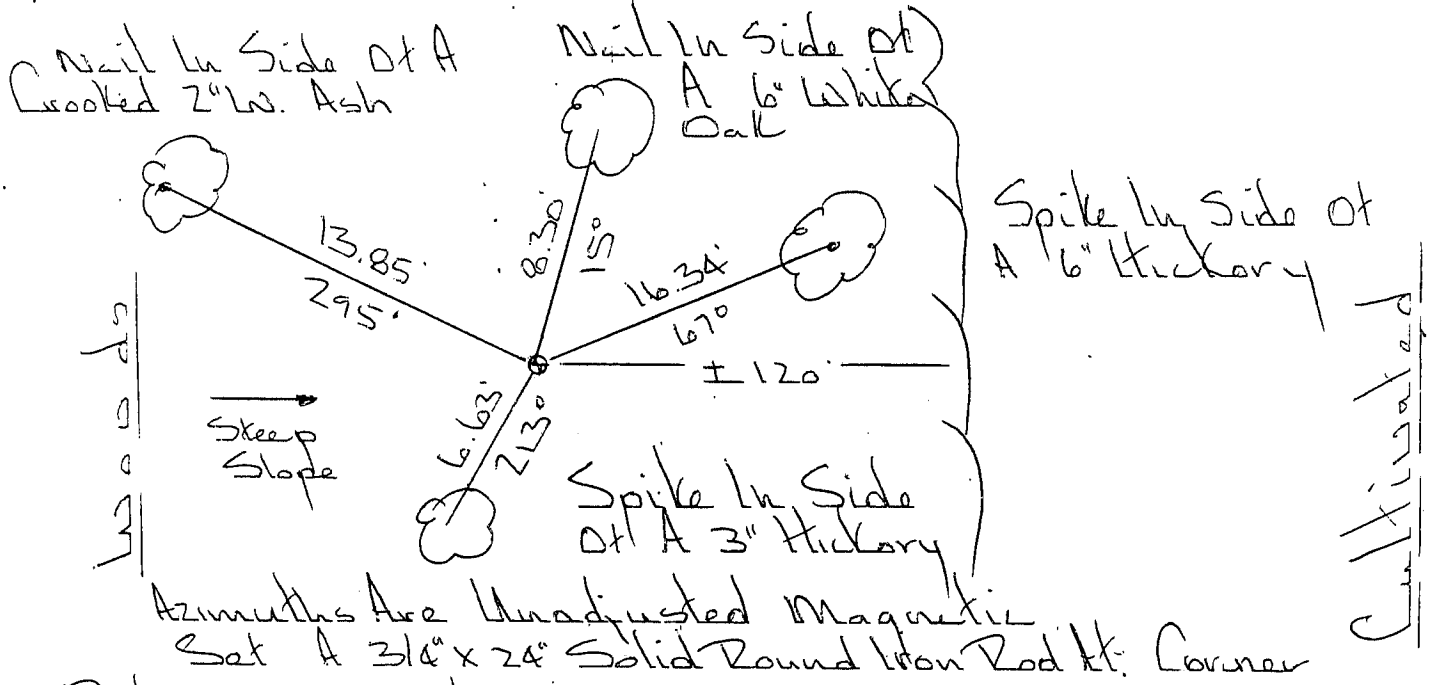 Nail In Side Of A
Crooked 2" W. Ash
Nail In Side Of
A 6" White
Oak
Spike In Side Of
A 6" Hickory
13.85'
295°
8.30'
15°
16.34'
67°
± 120'
6.63'
213°
Woods
Steep
Slope
Cultivated
Spike In Side
Of A 3" Hickory
Azimuths Are Unadjusted Magnetic
Set A 3/4" x 24" Solid Round Iron Rod At. Corner